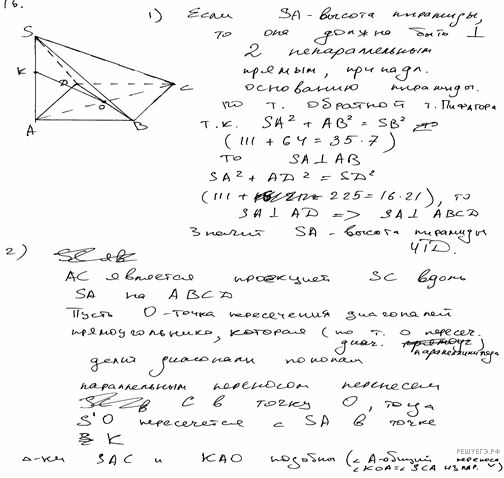 16.
1) Если SA - высота пирамиды,
то она должна быть ⊥
2 непаралельным
прямым, принадл.
основанию пирамиды.
по т. обратной т. Пифагора
т.к. SA² + AB² = SB²
(111 + 64 = 35·7)
то SA ⊥ AB
SA² + AD² = SD²
(111 + 225 = 16·21), то
SA ⊥ AD => SA ⊥ ABCD
Значит SA - высота пирамиды
ЧТД.
S
K
D
C
O
A
B
2)
AC является проекцией SC вдоль
SA на ABCD
Пусть O - точка пересечения диагоналей
прямоугольника, которая (по т. о пересеч.
диаг. параллелограмма)
делит диагонали пополам
параллельным переносом перенесем
C в точку O, тогда
S'O пересечется с SA в точке
K
SAC и KAO подобны (∠A-общий
∠KOA=∠SCA из пар. переноса)
РЕШУЕГЭ.РФ